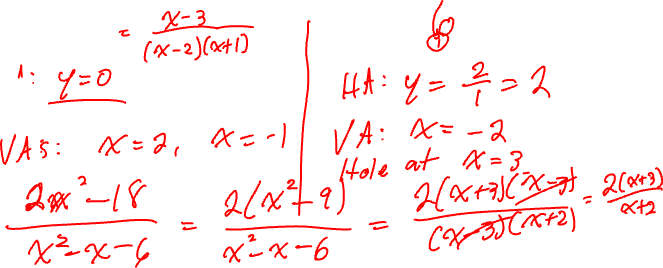 = (x-3)/((x-2)(x+1))
: y=0
VAs: x=2, x=-1
HA: y = 2/1 = 2
VA: x=-2
Hole at x=3
(2x²-18)/(x²-x-6) = (2(x²-9))/(x²-x-6) = (2(x+3)(x-3))/((x-3)(x+2)) = (2(x+3))/(x+2)